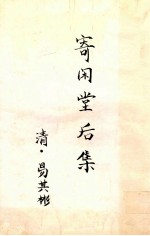 寄闲堂后集
清·易其彬